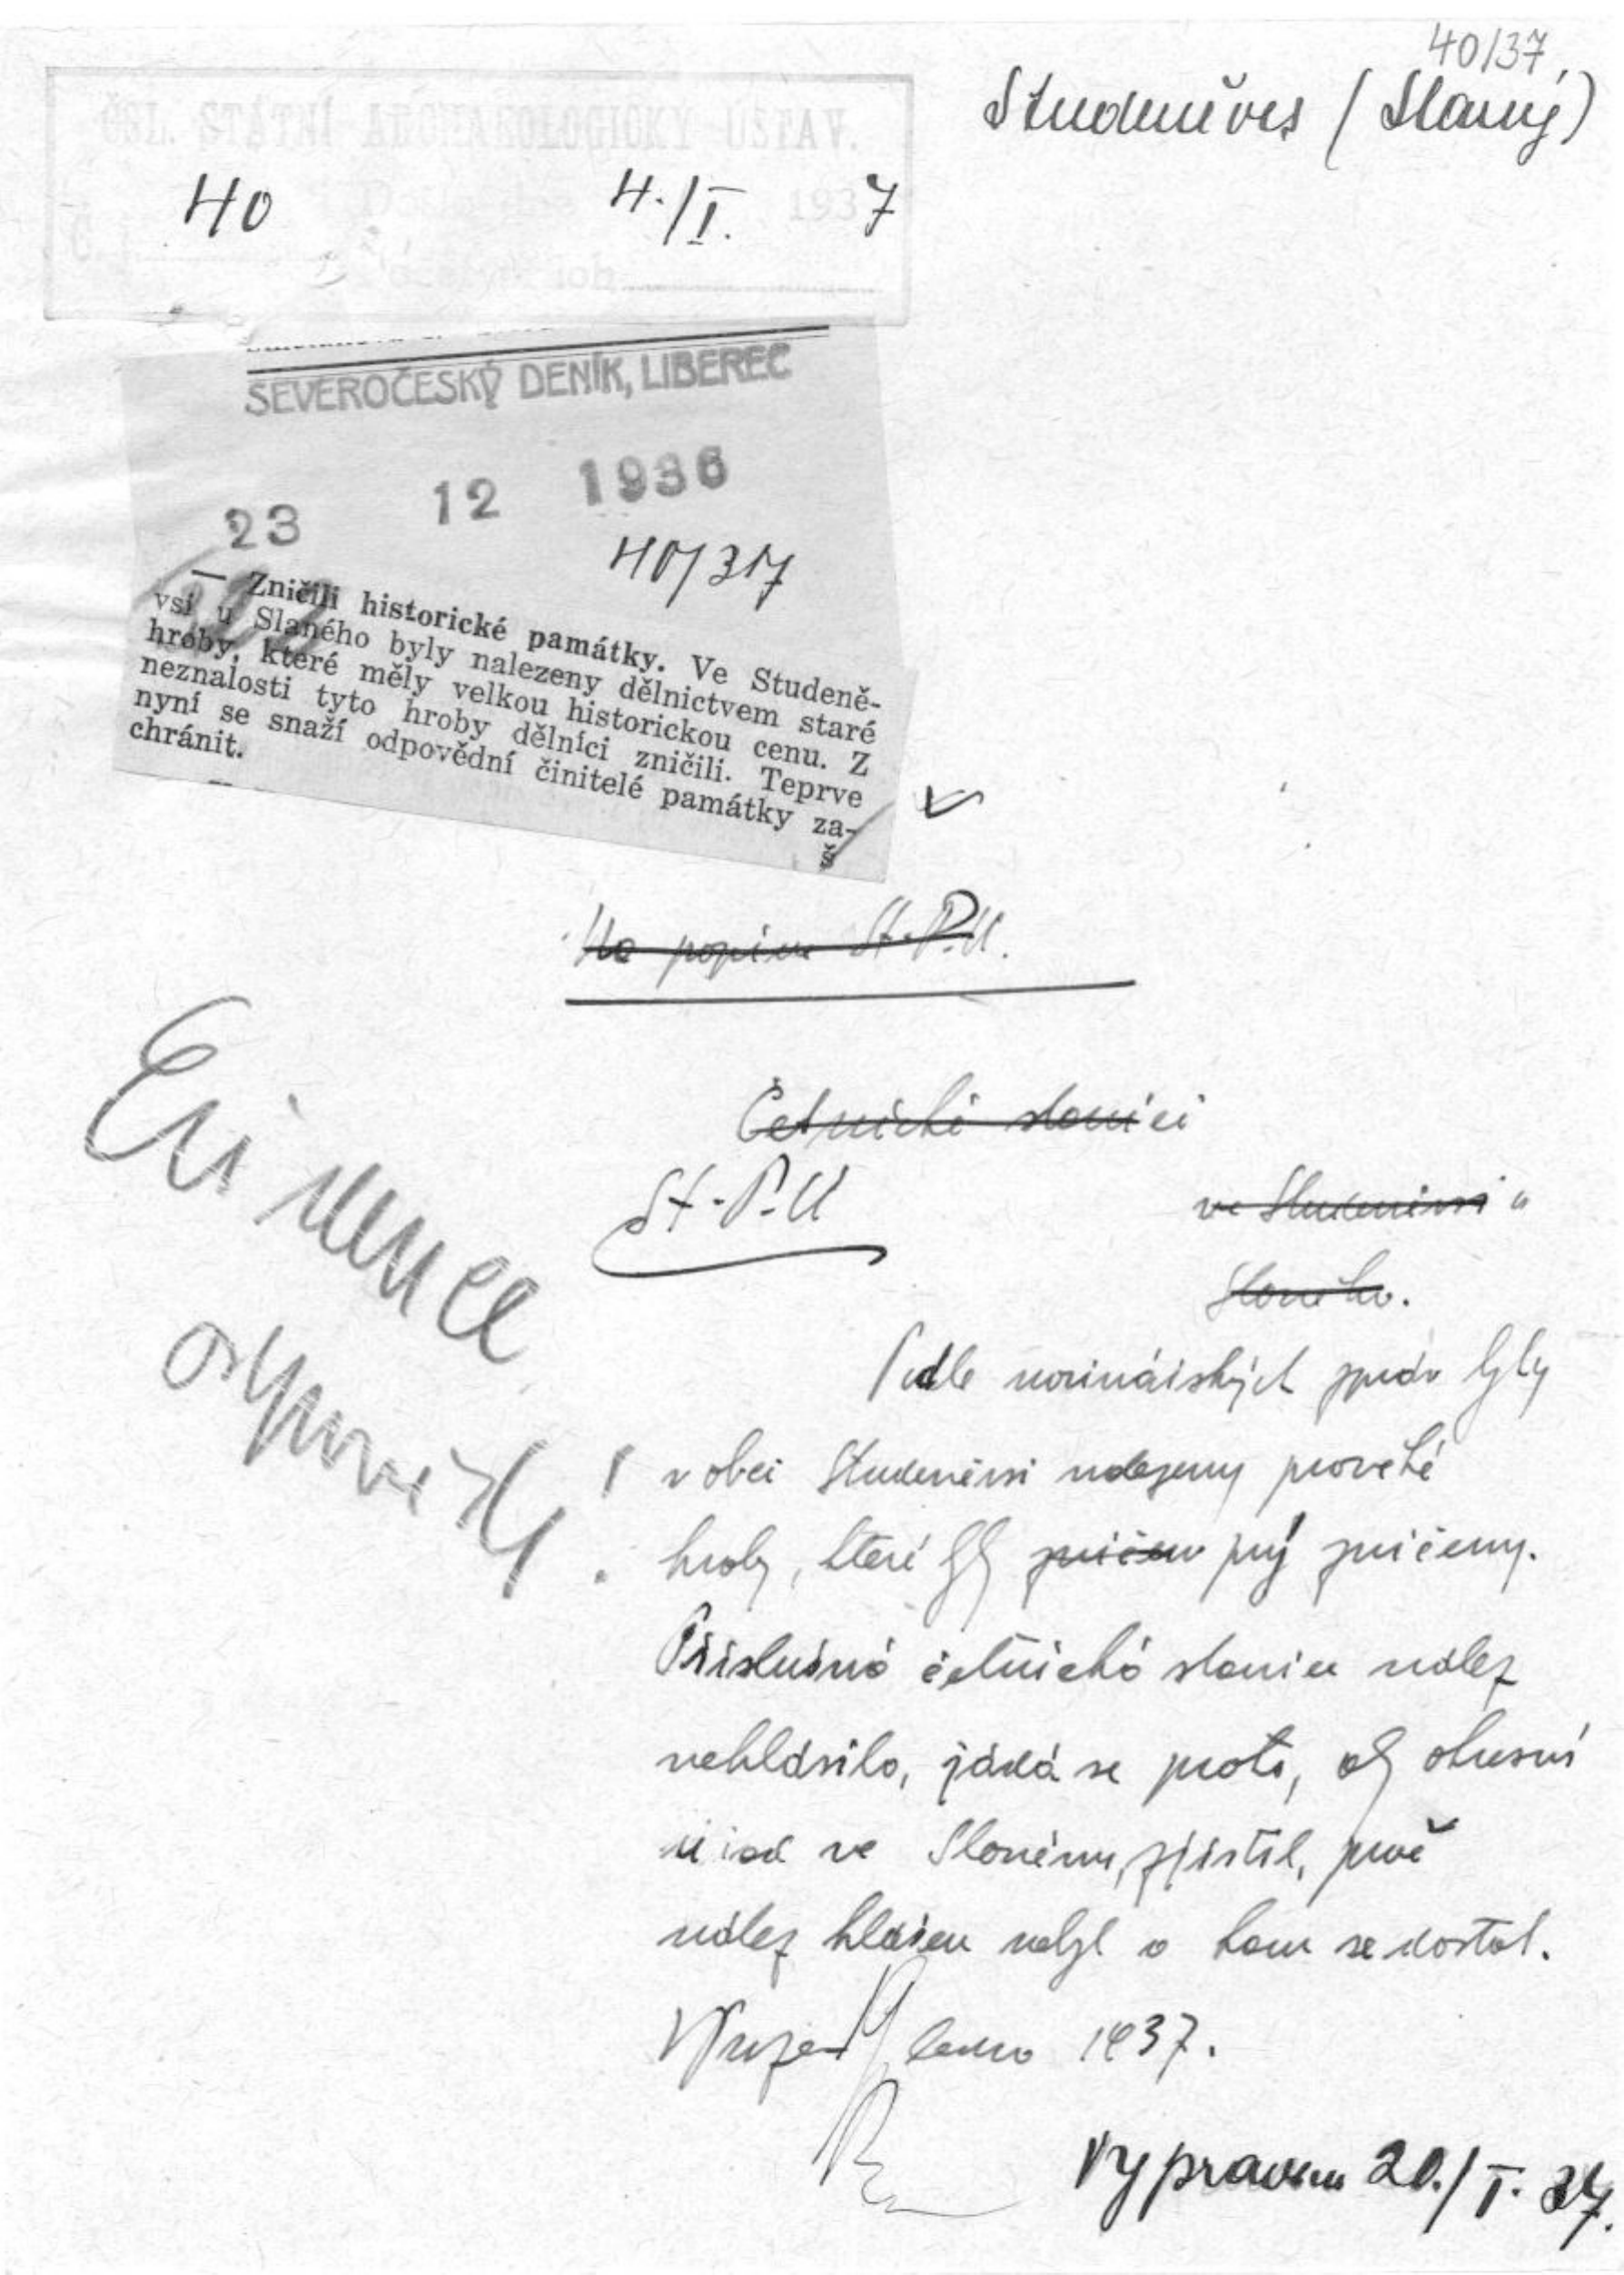 40/37,
Studeněves (Slaný)
ČSL. STÁTNÍ ARCHAEOLOGICKÝ ÚSTAV.
40 4./I. 1937
Č.
SEVEROČESKÝ DENÍK, LIBEREC
23 12 1936
40/37
— Zničili historické památky. Ve Studeně-
vsi u Slaného byly nalezeny dělnictvem staré
hroby, které měly velkou historickou cenu. Z
neznalosti tyto hroby dělníci zničili. Teprve
nyní se snaží odpovědní činitelé památky za-
chránit.
š
St. P. Ú.
Četnické stanici
St. P. Ú
ve Studeněvsi u
Slaného.
Evidence
odpovědi!
Podle novinářských zpráv byly
v obci Studeněvsi nalezeny pravěké
hroby, které byly zničeny prý zničeny.
Příslušná četnická stanice nález
nehlásila, žádá se proto, aby okresní
úřad ve Slaném, zjistil, proč
nález hlášen nebyl a kam se dostal.
V Praze ledna 1937.
Vypraveno 20./I. 37.